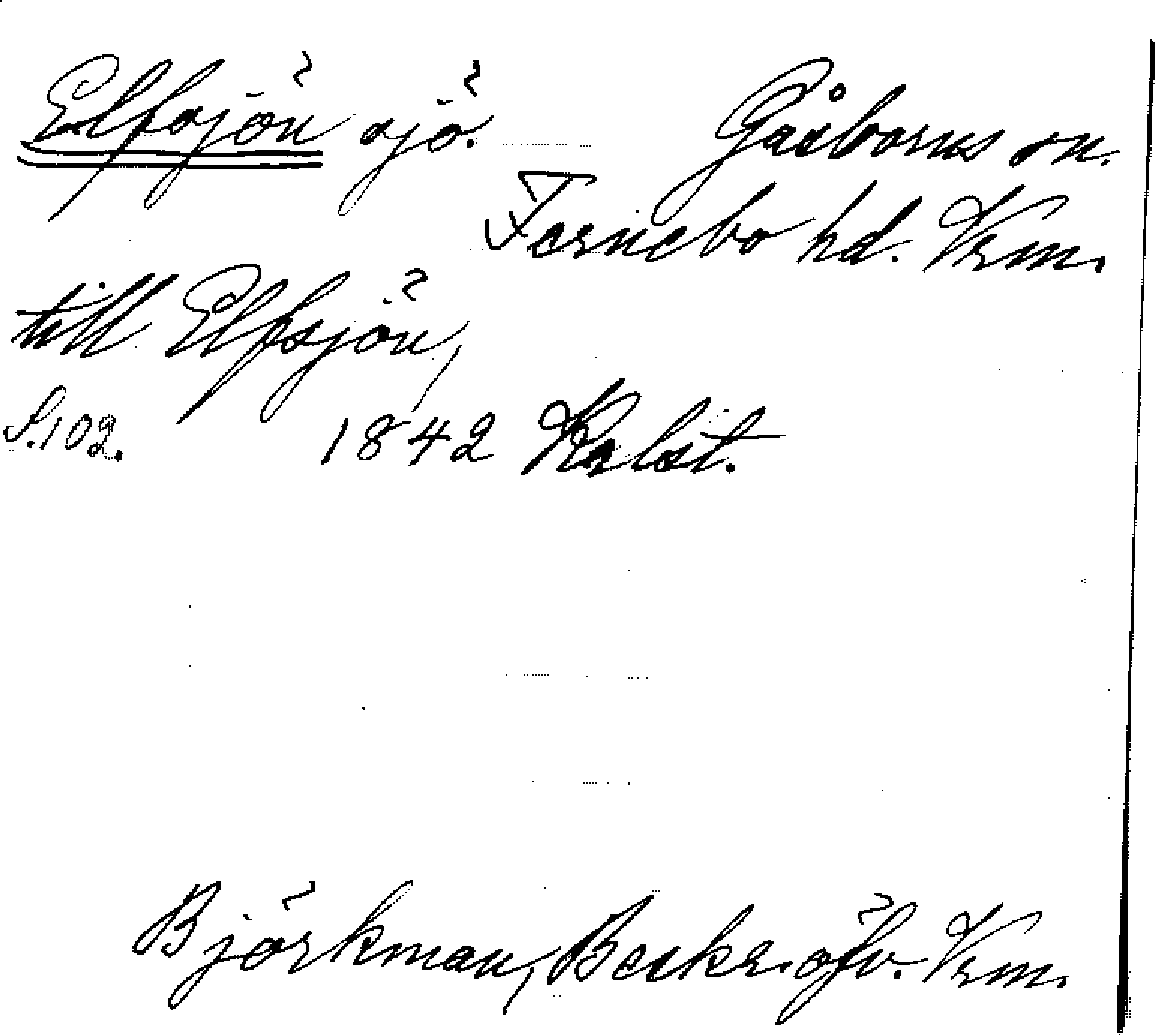 Elfsjön sjö. Gåsborns sn.
Fernebo hd. Vrm.
till Elfsjön,
S.102. 1842 Krlst.
Björkman, Beskr. öfv. Vrm.